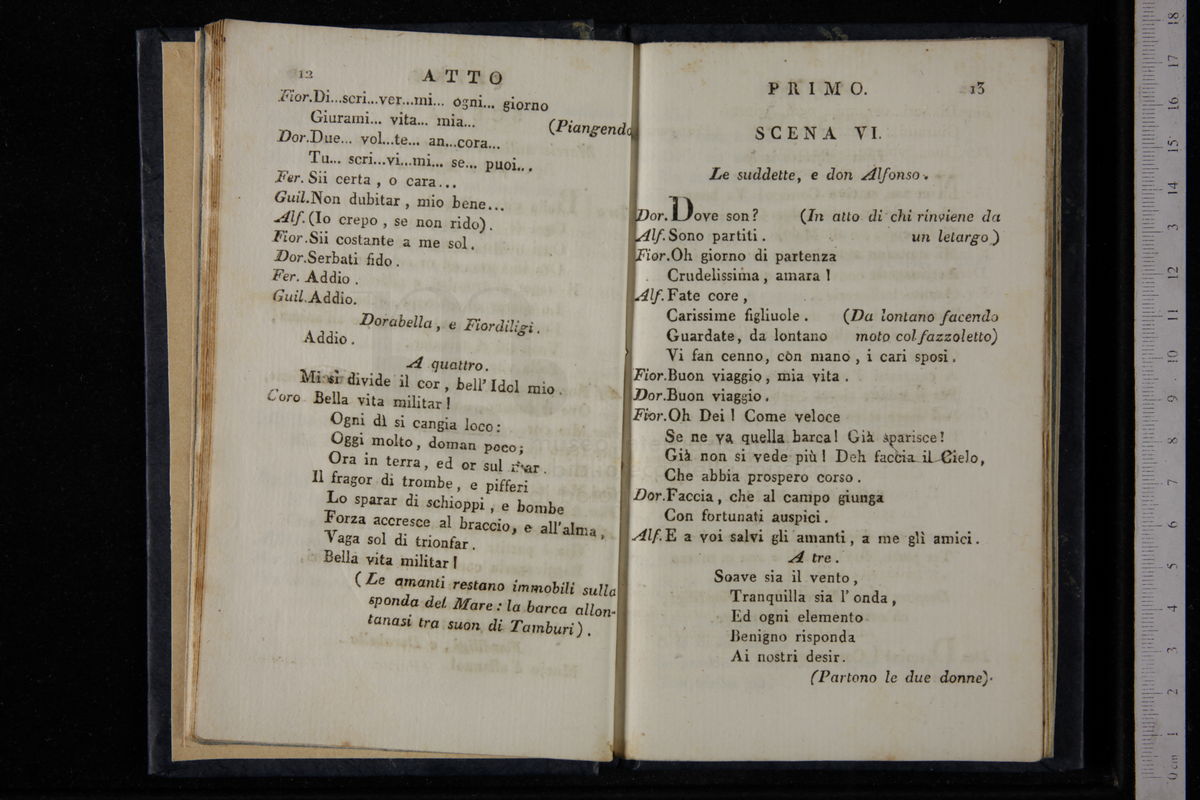 12 ATTO
Fior. Di...scri...ver...mi... ogni... giorno
Giurami... vita... mia... (Piangendo
Dor. Due... vol...te... an...cora...
Tu... scri...vi...mi... se... puoi...
Fer. Sii certa, o cara...
Guil. Non dubitar, mio bene...
Alf. (Io crepo, se non rido).
Fior. Sii costante a me sol.
Dor. Serbati fido.
Fer. Addio.
Guil. Addio.
Dorabella, e Fiordiligi.
Addio.
A quattro.
Mi si divide il cor, bell' Idol mio.
Coro Bella vita militar!
Ogni dì si cangia loco:
Oggi molto, doman poco;
Ora in terra, ed or sul mar.
Il fragor di trombe, e pifferi
Lo sparar di schioppi, e bombe
Forza accresce al braccio, e all'alma,
Vaga sol di trionfar.
Bella vita militar!
(Le amanti restano immobili sulla
sponda del Mare: la barca allon-
tanasi tra suon di Tamburi).
PRIMO. 13
SCENA VI.
Le suddette, e don Alfonso.
Dor. Dove son? (In atto di chi rinviene da
Alf. Sono partiti. un letargo)
Fior. Oh giorno di partenza
Crudelissima, amara!
Alf. Fate core,
Carissime figliuole. (Da lontano facendo
Guardate, da lontano moto col fazzoletto)
Vi fan cenno, còn mano, i cari sposi.
Fior. Buon viaggio, mia vita.
Dor. Buon viaggio.
Fior. Oh Dei! Come veloce
Se ne va quella barca! Già sparisce!
Già non si vede più! Deh faccia il Cielo,
Che abbia prospero corso.
Dor. Faccia, che al campo giunga
Con fortunati auspici.
Alf. E a voi salvi gli amanti, a me glì amici.
A tre.
Soave sia il vento,
Tranquilla sia l' onda,
Ed ogni elemento
Benigno risponda
Ai nostri desir.
(Partono le due donne).
0 cm 1 2 3 4 5 6 7 8 9 10 11 12 13 14 15 16 17 18